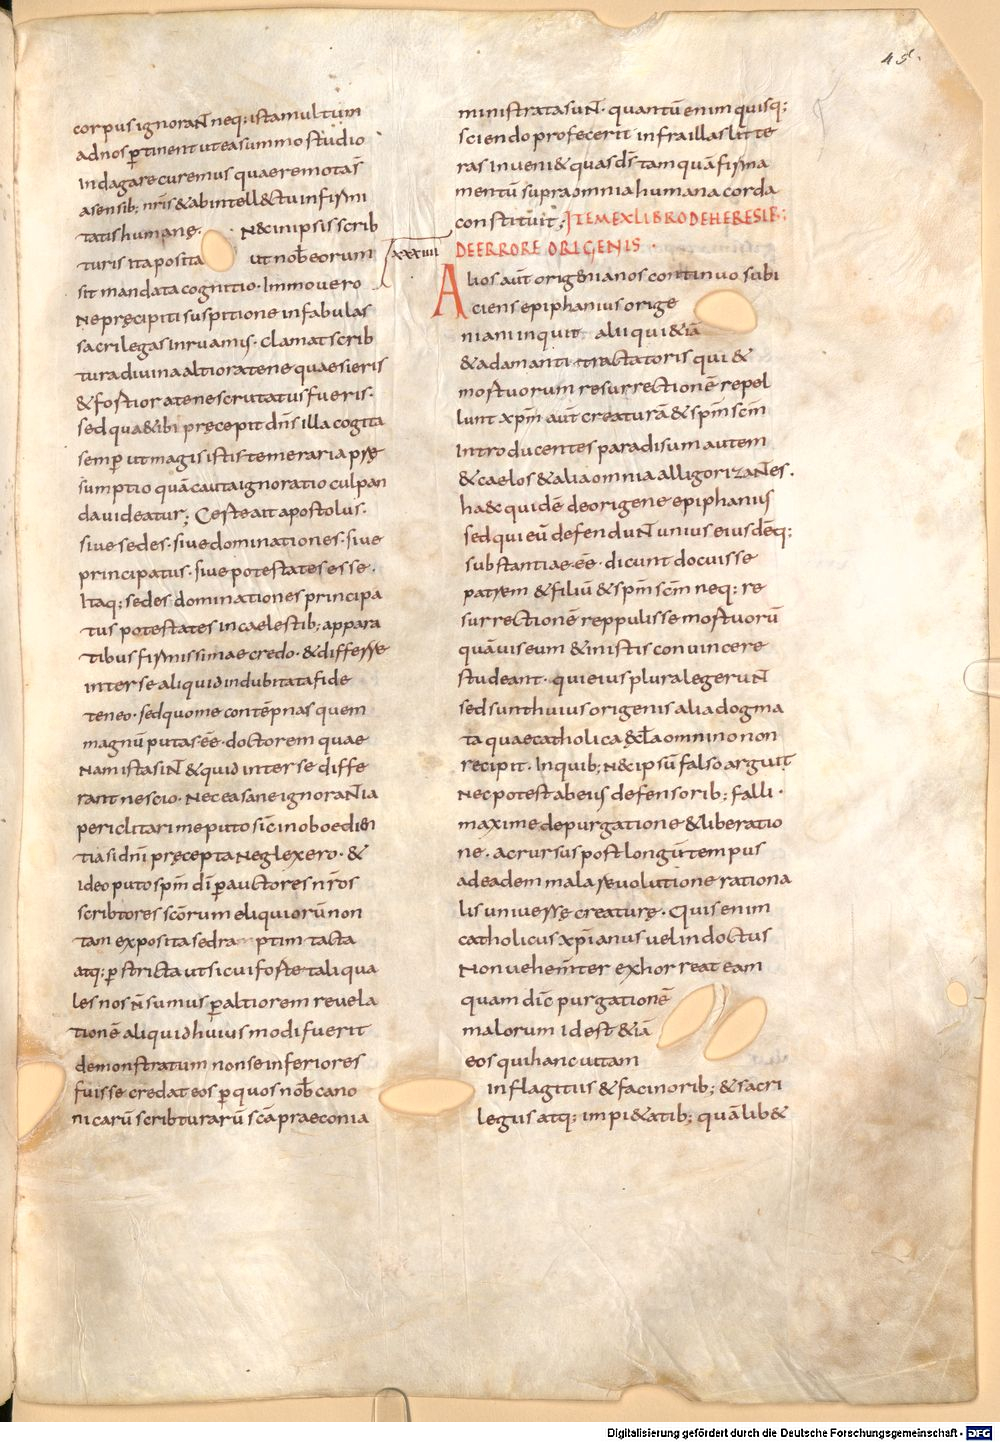 45.
corpus ignorant neq; ista multum
ad nos ꝑtinent ut ea summo studio
indagare curemus quae remota s̄
a sensib; nr̄is & ab intellectu infirmi
tatis humanę. N& in ipsis scrib
turis ita posita ut nob̄ eorum
sit mandata cognitio. Immo uero
Ne pręcipiti suspitione in fabulas
sacrilegas inruamis. clamat scrib
tura diuina altiora te ne quaesieris
& fostiora te ne scrutatus fueris.
sed quae tibi pręcepit dn̄s illa cogita
semꝑ ut magis istis temeraria pręs
sumptio quā cauta ignoratio culpan
da uideatur; Certe ait apostolus.
siue sedes. siue dominationes. siue
principatus. siue potestates esse.
Itaq; sedes dominationes principa
tus potestates in caelestib; appara
tibus firmissimae credo. & differre
inter se aliquid indubitata fide
teneo. sed quo me contēpnas quem
magnū putas ēe. doctorem quae
Nam ista sint & quid inter se diffe
rant nescio. Nec ea sane ignorantia
periclitari me puto sic̄ inoboedien
tia si dn̄i pręcepta neglexero. &
Ideo puto sp̄m dī ꝑ auctores nr̄os
scribtores sc̄orum eliquiorū non
tam exposita sed raptim tacta
atq; ꝑstricta ut si cui foste taliqua
les nos n̄ sumus ꝑ altiorem reuela
tionē aliquid huius modi fuerit
demonstratum non se inferiores
fuisse credat eos ꝑ quos nob̄ cano
nicarū scribturarū sc̄a praeconia
ministrata sunt. quantū enim quisq;
sciendo profecerit infra illas litte
ras inueni& quas ds̄ tamquā firma
mentū supra omnia humana corda
constituit; ITEM EX LIBRO DE HERESIB;
DE ERRORE ORIGENIS.
xxxiiii
Alios aūt origenianos continuo subi
ciens epiphanius orige
niani inquit alii qui &iā
& adamanti tractatoris qui &
mostuorum resurrectionē repel
lunt xp̄m aūt creaturā & sp̄m sc̄m
Introducentes paradisum autem
& caelos & alia omnia alligorizantes.
haec quidē de origene epiphanius
sed qui eū defendunt unius eiusdēq;
substantiae ēe. dicunt docuisse
patrem & filiū & sp̄m sc̄m neq; re
surrectionē reppulisse mostuorū
quāuis eum & in istis conuincere
studeant. qui eius plura legerunt
sed sunt huius origenis alia dogma
ta quae catholica eccl̄a omnino non
recipit. In quib; nec ipsū falso arguit
Nec potest ab eius defensorib; falli.
maxime de purgatione & liberatio
ne. ac rursus post longū tempus
ad eadem mala reuolutione rationa
lis uniuersę creaturę. Quis enim
catholicus xp̄ianus uel indoctus
Non uehem̄ter exhorreat eam
quam dic̄ purgationē
malorum id est &iā
eos qui hanc uitam
in flagitiis & facinorib; & sacri
legiis atq; impi&atib; quālib&
Digitalisierung gefördert durch die Deutsche Forschungsgemeinschaft - DFG